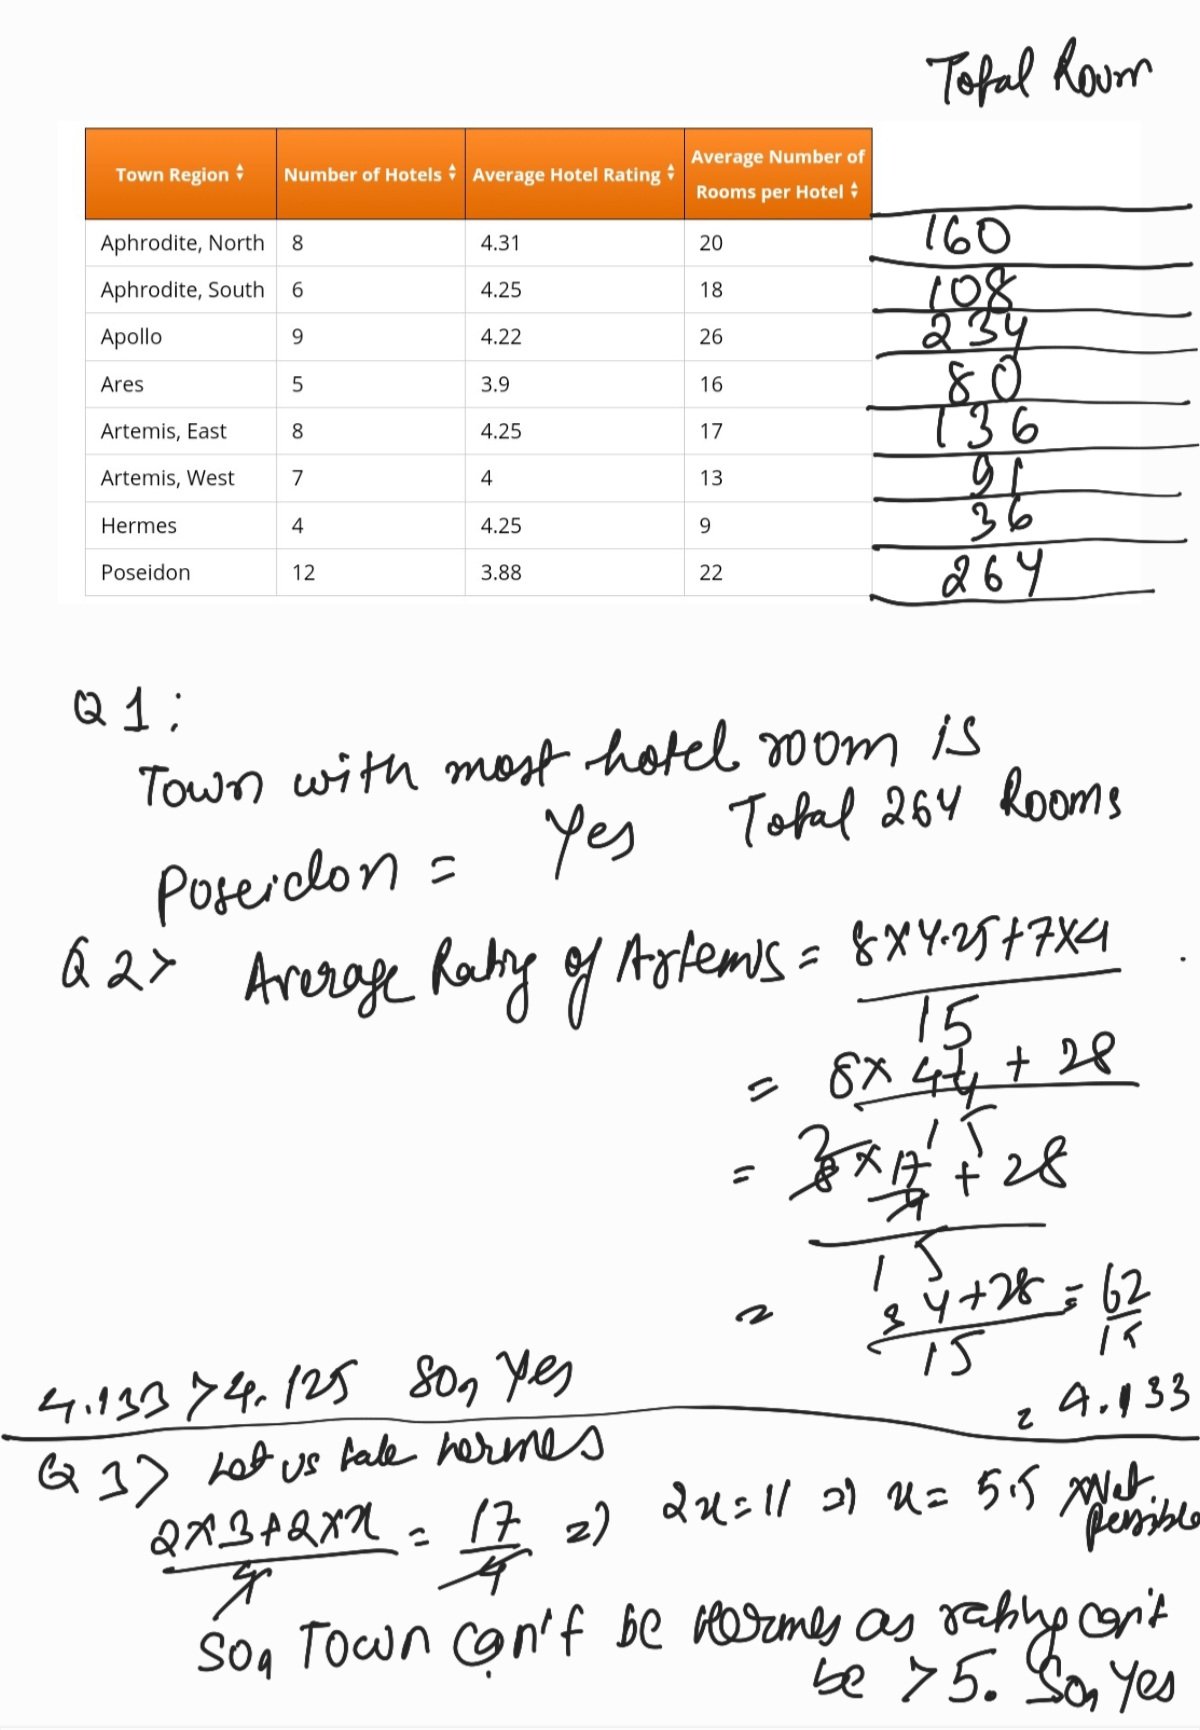 Total Room
Town Region Number of Hotels Average Hotel Rating Average Number of Rooms per Hotel
Aphrodite, North 8 4.31 20 160
Aphrodite, South 6 4.25 18 108
Apollo 9 4.22 26 234
Ares 5 3.9 16 80
Artemis, East 8 4.25 17 136
Artemis, West 7 4 13 91
Hermes 4 4.25 9 36
Poseidon 12 3.88 22 264
Q 1 :
Town with most hotel room is
Poseidon = Yes Total 264 Rooms
Q 2> Average Rating of Artemis = 8 x 4.25 + 7 x 4
15
= 8 x 4 1/4 + 28
15
= 8 x 17/4 + 28
15
= 34 + 28 = 62
15 15
= 4.133
4.133 > 4.125 So, Yes
Q 3> Let us take hermes
2 x 3 + 2 x x = 17 => 2x = 11 => x = 5.5 Not possible
4 4
So, Town can't be Hermes as rating can't
be > 5. So, Yes